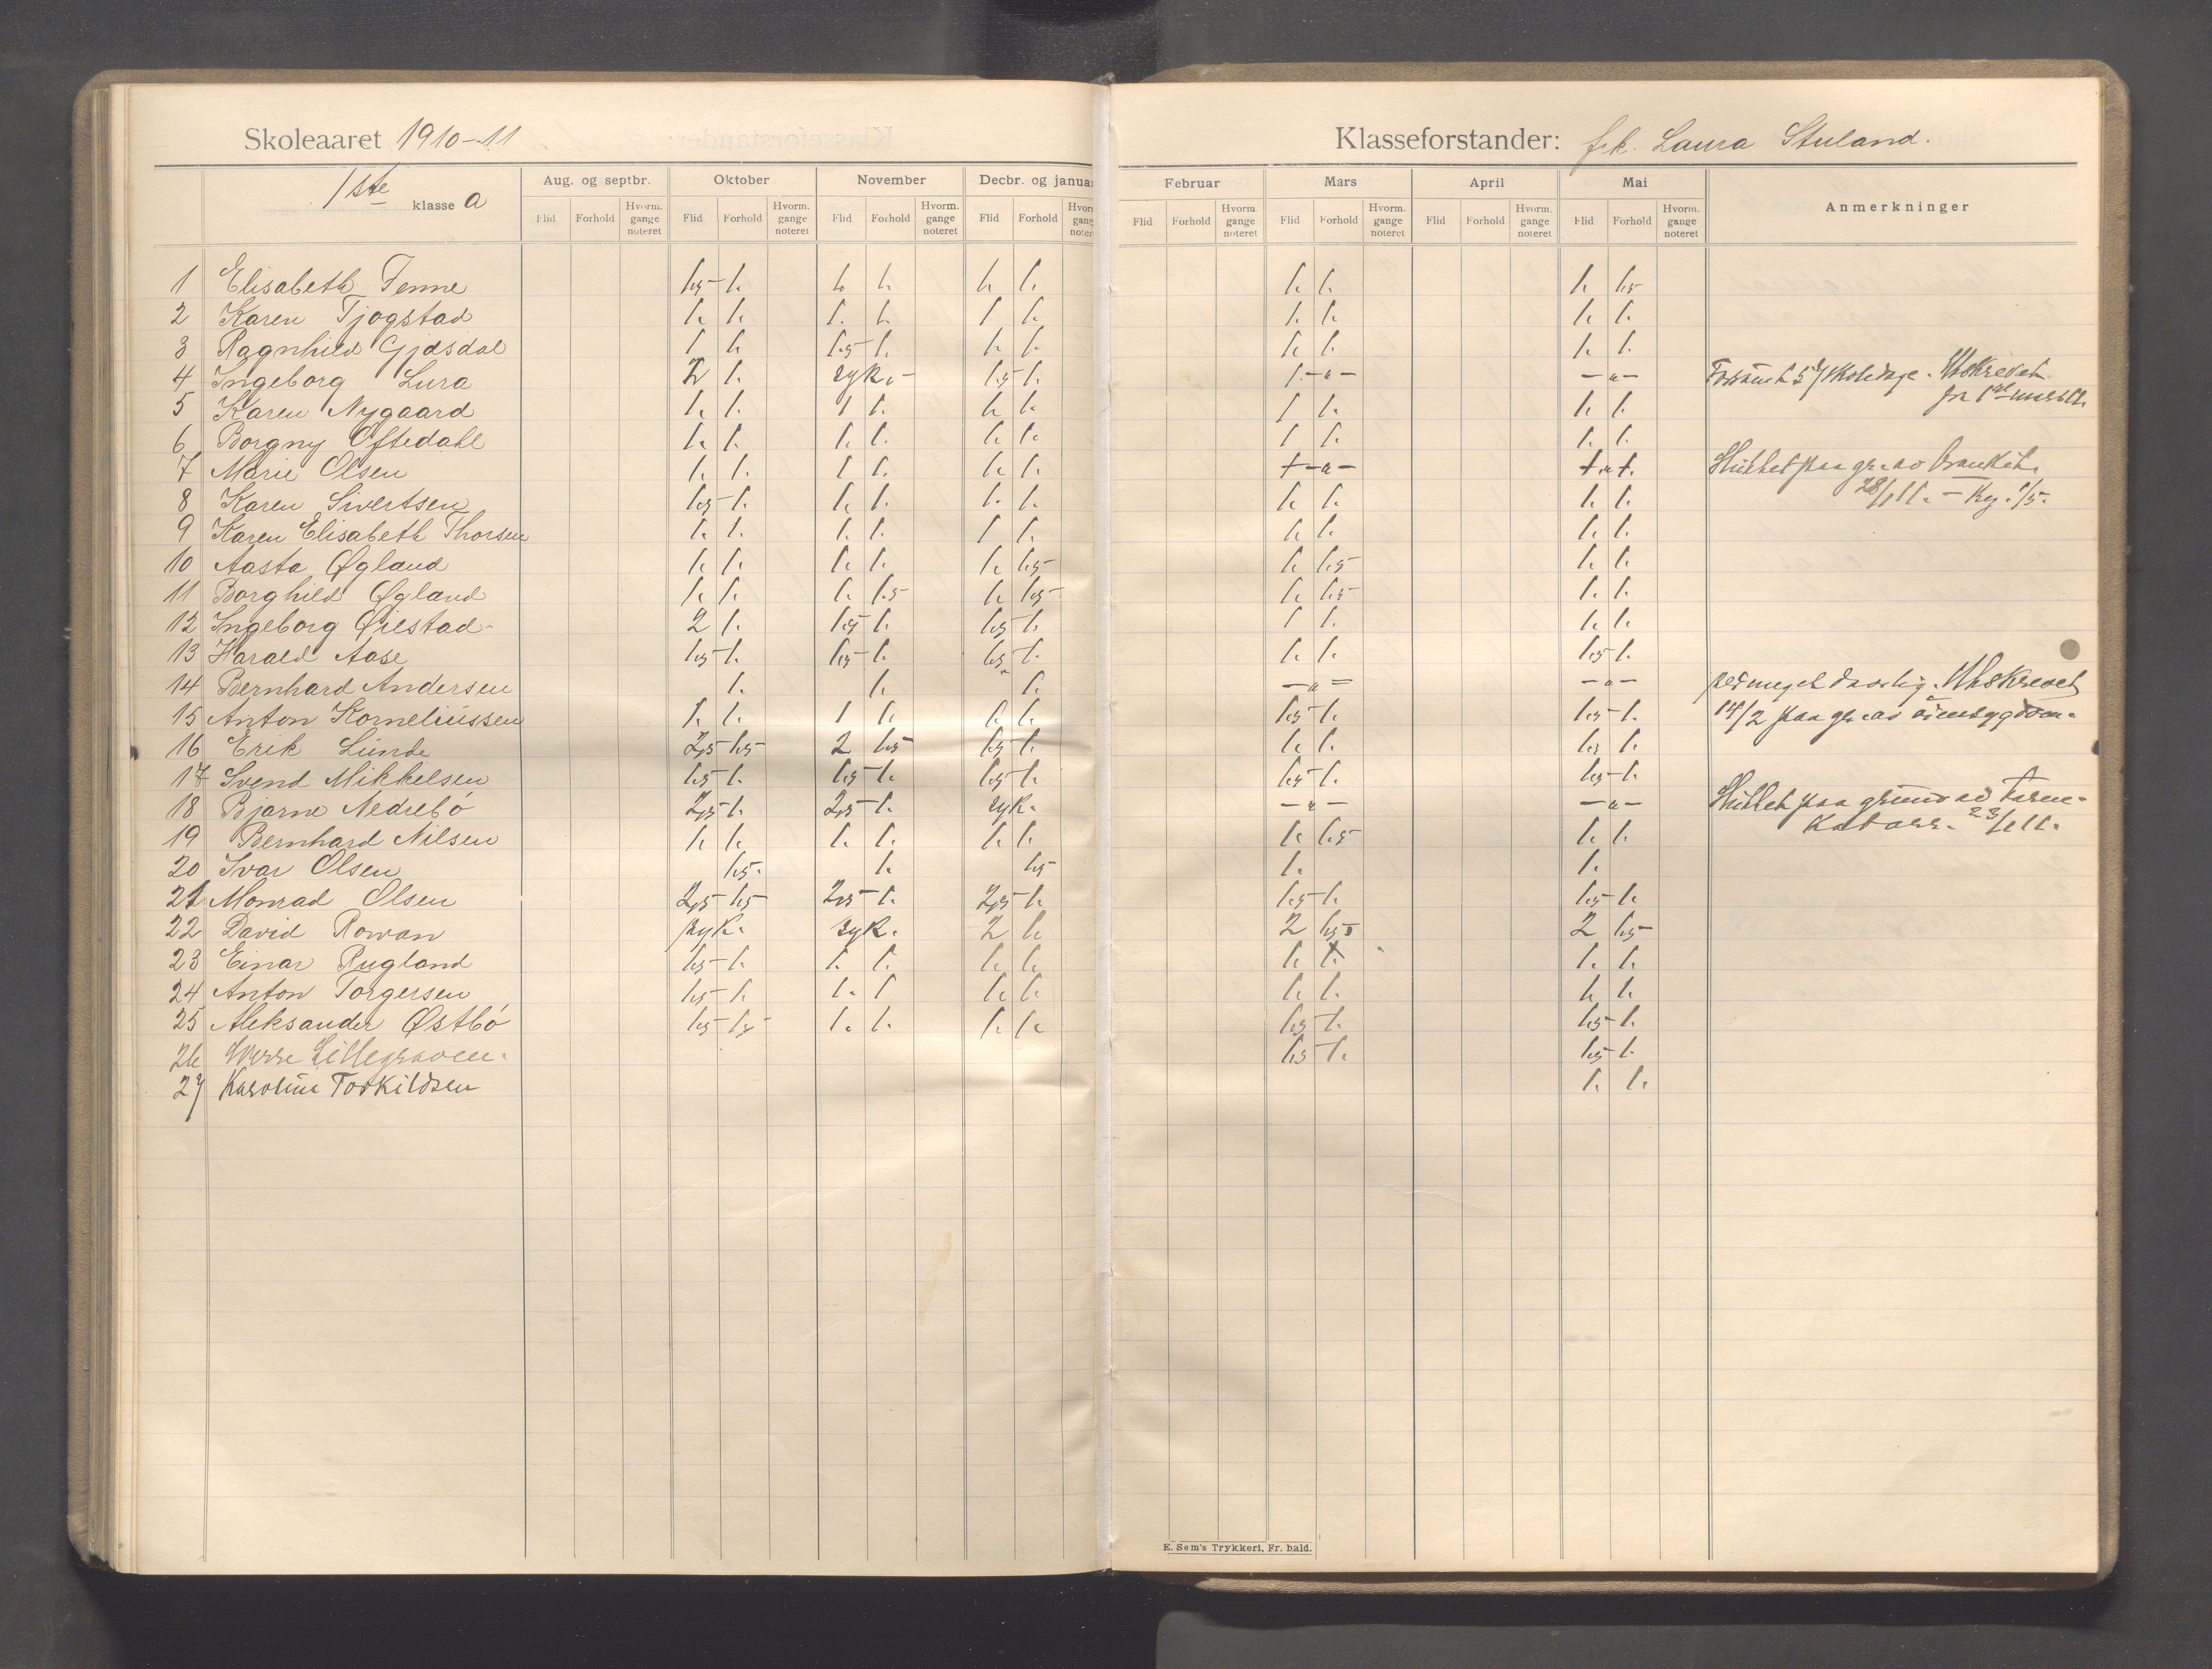 Skoleaaret 1910-11
Klasseforstander: frk. Laura Stuland.
1ste klasse a
Aug. og septbr. Oktober November Decbr. og januar Februar Mars April Mai Anmerkninger
Flid Forhold Hvorm. gange noteret Flid Forhold Hvorm. gange noteret Flid Forhold Hvorm. gange noteret Flid Forhold Flid Forhold Hvorm. gange noteret Flid Forhold Hvorm. gange noteret Flid Forhold Hvorm. gange noteret Flid Forhold Hvorm. gange noteret
1 Elisabeth Fenne 1,5 1. 1. 1. 1. 1. 1. 1. 1. 1,5
2 Karen Tjøgstad 1. 1. 1. 1. 1 1. 1. 1. 1. 1.
3 Ragnhild Gjdsdal 1 1. 1,5 1. 1. 1. 1. 1. 1. 1.
4 Ingeborg Lura 2 1. syk. - 1,5 1. 1. -"- -"- skoledage. Utskrevet
5 Karen Nygaard 1. 1. 1 1. 1. 1. 1 1. 1. 1.
6 Borgny Oftedahl 1. 1. 1. 1. 1. 1. 1 1. 1. 1.
7 Marie Olsen 1. 1. 1 1. 1. 1. -"- Sluttet paa gr. av
28/1 11. -
8 Karen Sivertsen 1,5 1. 1. 1. 1. 1. 1. 1. 1. 1.
9 Karen Elisabeth Thorsen 1. 1. 1. 1. 1 1. 1. 1. 1. 1.
10 Aasta Øgland 1. 1. 1. 1. 1. 1,5 1. 1,5 1. 1.
11 Borghild Øgland 1. 1. 1. 1.5 1. 1,5 1. 1,5 1. 1.
12 Ingeborg Øiestad 2 1. 1,5 1. 1,5 1. 1 1. 1. 1.
13 Harald Aase 1,5 1. 1,5 1. 1,5 1. 1. 1. 1,5 1.
14 Bernhard Andersen 1. 1. 1. -"- -"- meget daarlig. Utskrevet
15 Anton Korneliussen 1. 1. 1 1. 1. 1. 1,5 1. 1,5 1. 14/2 paa gr. av øiensygdom.
16 Erik Lunde 2,5 1,5 2 1,5 1,5 1. 1. 1. 1. 1.
17 Svend Mikkelsen 1,5 1. 1,5 1. 1,5 1. 1,5 1. 1,5 1.
18 Bjarne Nedrebø 2,5 1. 2,5 1. syk. -"- -"- Sluttet paa grund av tarm-
katarr. 23/1 11.
19 Bernhard Nilsen 1. 1. 1. 1. 1. 1. 1. 1,5 1. 1.
20 Ivar Olsen 1,5. 1. 1,5 1. 1.
21 Monrad Olsen 2,5 1,5 2,5 1. 2,5 1. 1,5 1. 1,5 1.
22 David Rowan syk. syk. 2 1. 2 1,5 2 1,5
23 Einar Rugland 1,5 1. 1. 1. 1. 1. 1. 1. 1. 1.
24 Anton Torgersen 1,5 1. 1. 1 1. 1. 1. 1. 1. 1.
25 Aleksander Østbø 1,5 1. 1. 1. 1. 1,5 1. 1,5 1.
26 Lillegraven. 1,5 1. 1,5 1.
27 Karoline Torkildsen 1. 1.
E. Sem's Trykkeri, Fr. hald.